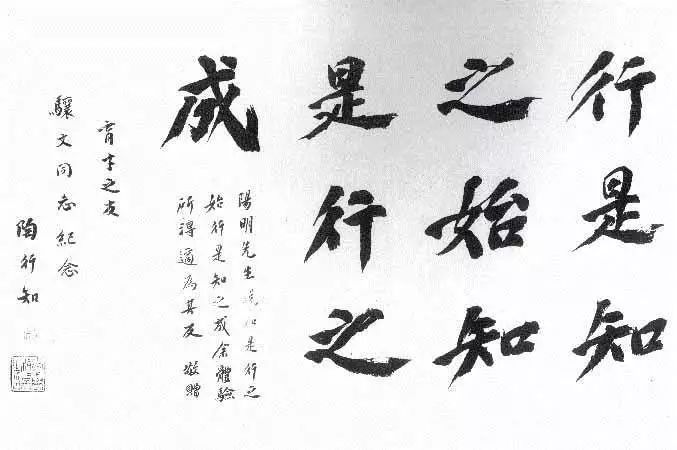 行是知
之始知
是行之
成
陽明先生説知是行之
始行是知之成余體驗
所得適為其反 敬贈
育才之友
驤文同志紀念
陶行知